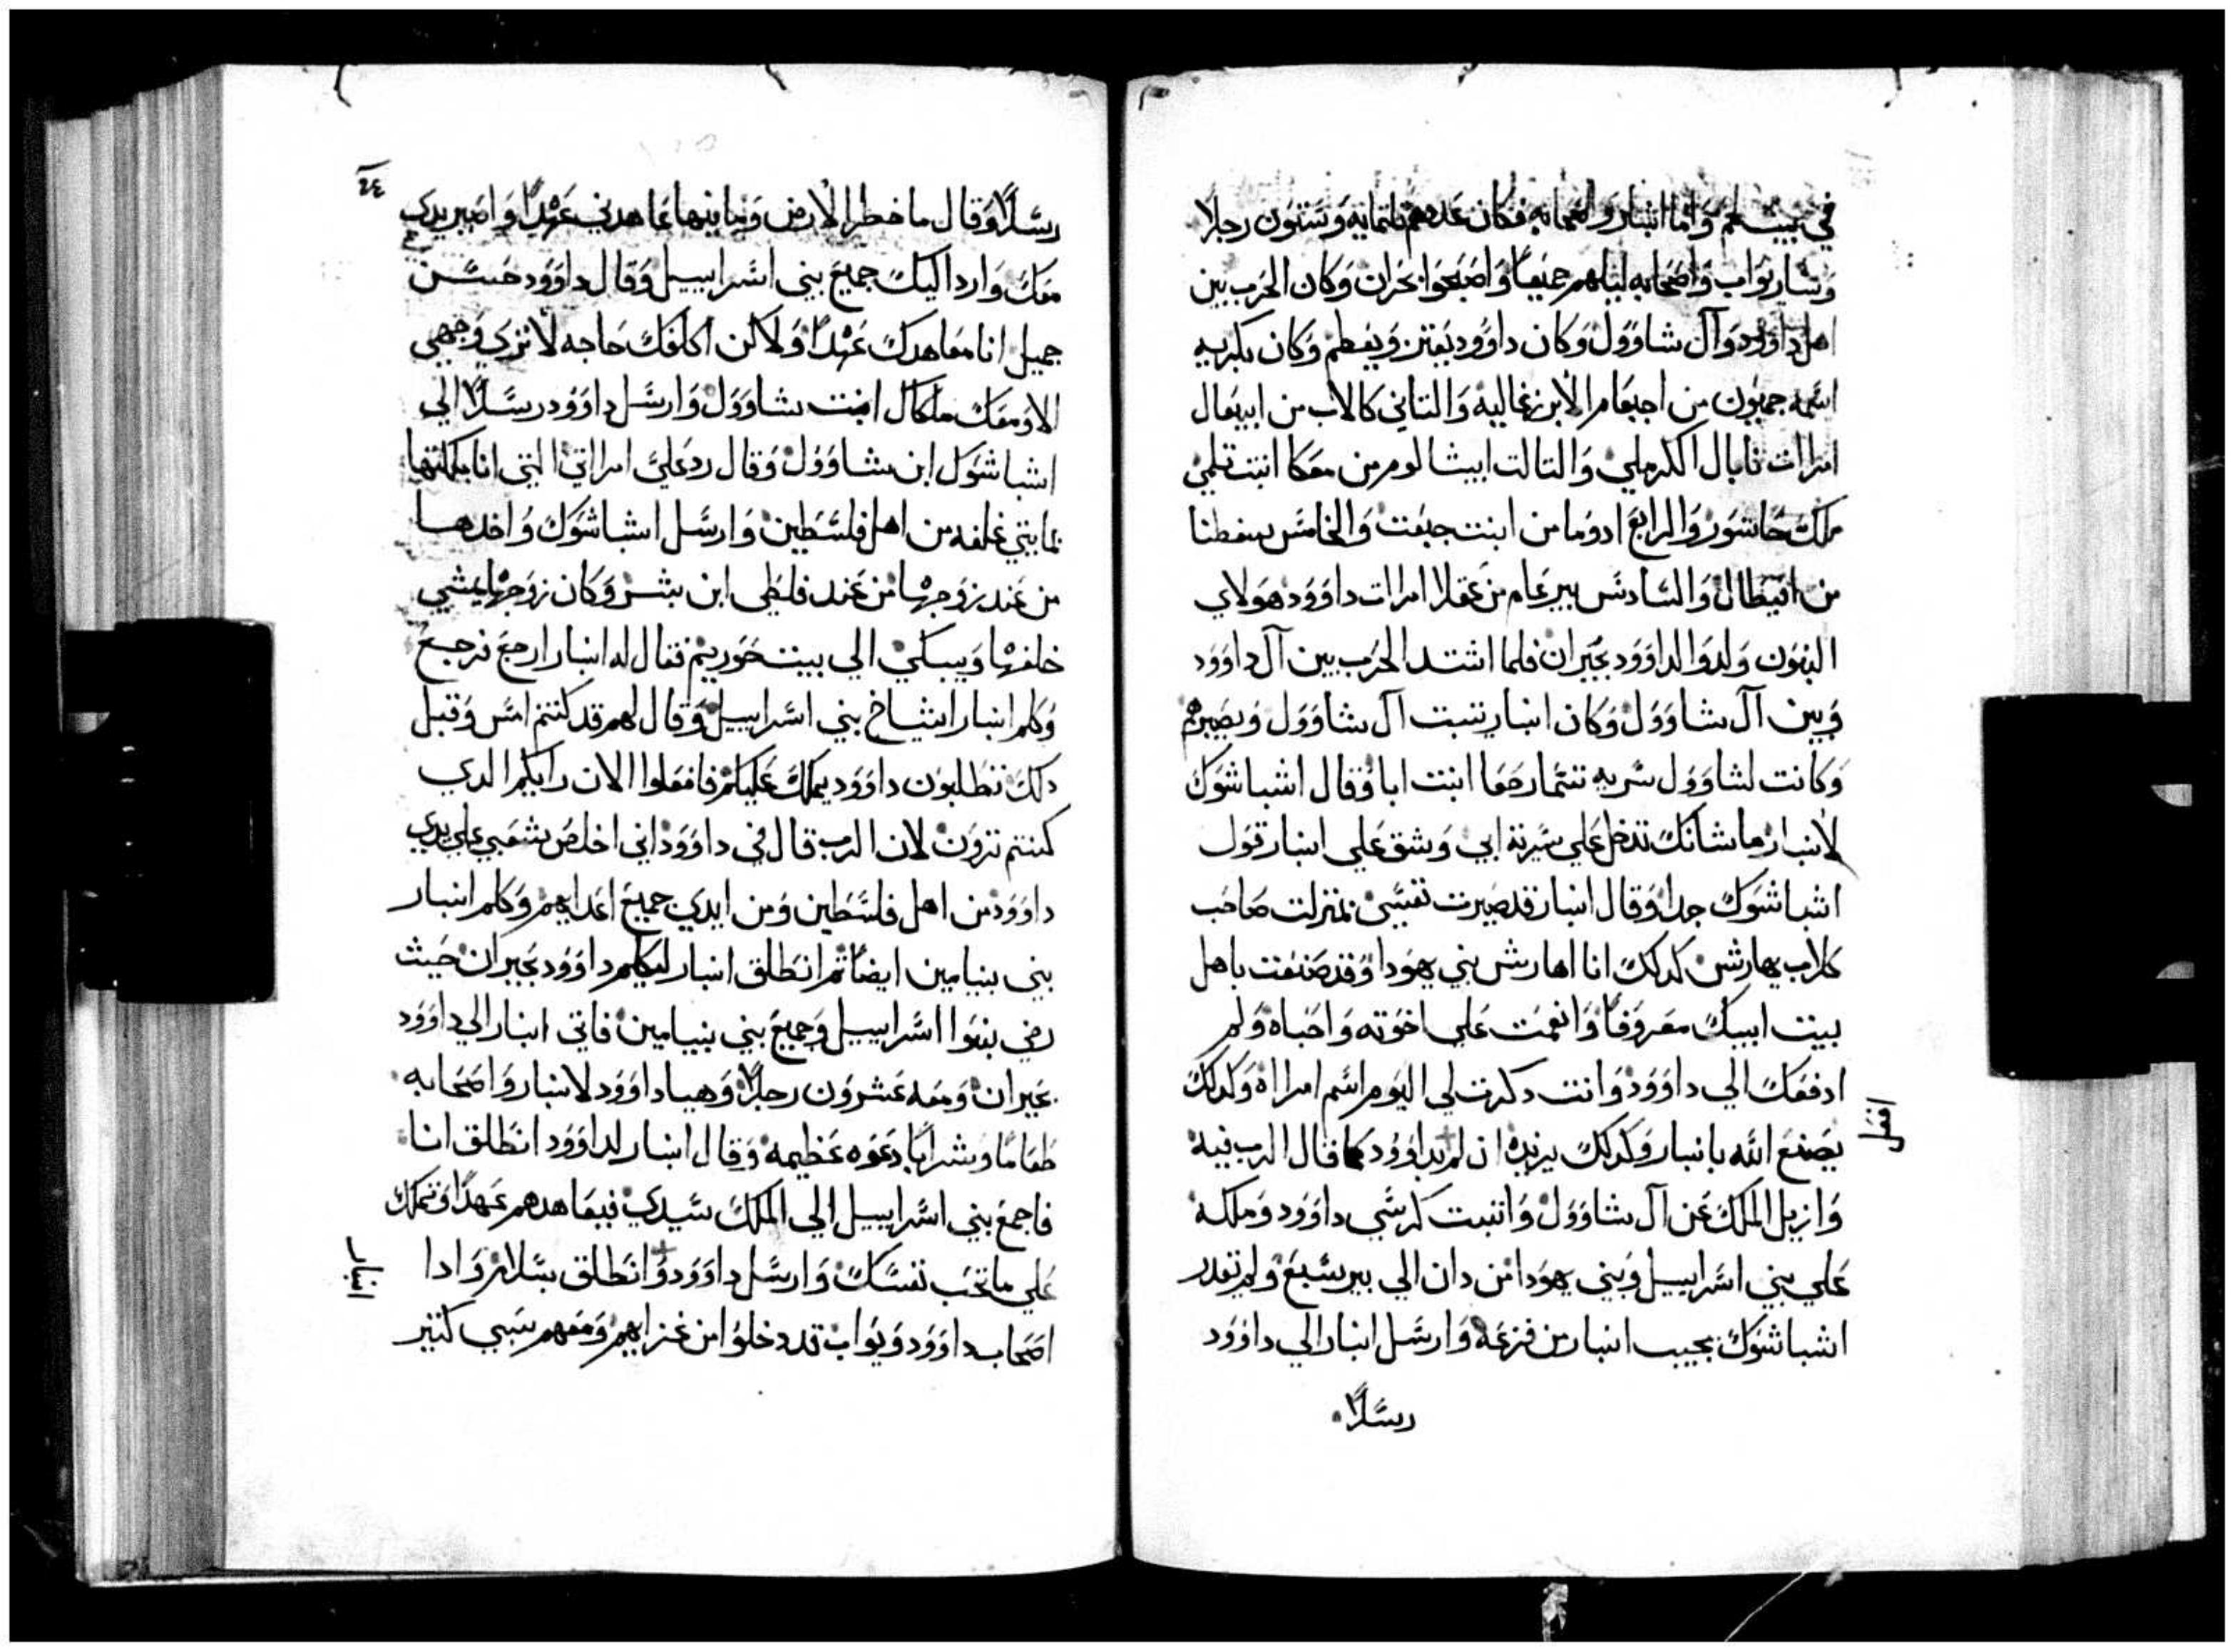 في بيت لحم واما انبار واصحابه فكان عددهم ثلتمايه وستون رجلا
وسار يواب واصحابه ليلهم جميعا واصبحوا بحران وكان الحرب بين
اهل داوود وآل شاوول وكان داوود يعتز ويعظم وكان بكريه
اسمه حمنون من اجيعام الابزرعاليه والتاني كالاب من ابيغال
امرات نابال الكرملي والتالت ابيشالوم من معكا ابنت تلمي
ملك حاشور والرابع ادوما من ابنت حبعت والخامس سفطنا
من ابيطال والسادس يير عام من عقلا امرات داوود هولاي
البنون ولدوا لداوود بحبران فلما اشتد الحرب بين آل داوود
وبين آل شاوول وكان ابنار تثبت آل شاوول ويصيرهم
وكانت لشاوول سريه تتما رحفا ابنت ابا وقال اشباشوك
لانبار ما شانك تدخل علي سرية ابي وشق علي ابنار قول
اشباشوك جدا وقال ابنار قد صيرت نفسي بمنزلت صاحب
كلاب يهارش كدلك انا اهارش بني يهودا وقد صنعت باهل
بيت ابيك معروفا وانعمت علي اخوته واحباه ولم
ادفعك الي داوود وانت دكرت لي اليوم اسم امراه وكدلك
يصنع الله بانبار وكدلك يزيده ان لم بداوود كما قال الرب فيه
افعل
وازيل الملك عن آل شاوول واتبت كرسي داوود وملكه
علي بني اسراييل وبني يهودا من دان الي بير سبع ولم تقدر
اشباشوك بجيب انبار من فزعه وارسل انبار الي داوود
رسلا
٢٤
رسلا وقال ما خطر الارض وما فيها عاهدني عهدا واصير يدي
معك وارد اليك جميع بني اسراييل وقال داوود حسن
جميل انا معاهدك عهدا ولاكن اكلفك حاجه لا تري وجهي
الا ومعك ملكال ابنت شاوول وارسل داوود رسلا الي
اشباشوك ابن شاوول وقال رد علي امراتي التي انا ملكتها
بمايتي غلفه من اهل فلسطين وارسل اشباشوك واخدها
من عند زوجها من عند فلطي ابن بتس وكان زوجها يمشي
خلفها ويبكي الي بيت حوريم فقال له ابنار ارجع فرجع
وكلم ابنار اشياخ بني اسراييل وقال لهم قد كنتم امس وقبل
دلك تطلبون داوود يملك عليكم فافعلوا الان رايكم الدي
كنتم ترون لان الرب قال في داوود اني اخلص شعبي علي يدي
داوود من اهل فلسطين ومن ايدي جميع اعدايهم وكلم ابنار
بني بنيامين ايضا تم انطلق ابنار ليكلم داوود بحبران حيث
رضي بنوا اسراييل وجميع بني بنيامين فاتي ابنار الي داوود
بحبران ومعه عشرون رجلا وهيا داوود لابنار واصحابه
طعاما وشرابا دعوه عظيمه وقال ابنار لداوود انطلق انا
فاجمع بني اسراييل الي الملك سيدي فيعاهدهم عهدا وتملك
علي ما تحب نفسك وارسل داوود وانطلق بسلام وادا
ابنار
اصحاب داوود ويواب قد دخلوا من غزاهم ومعهم سبي كتير